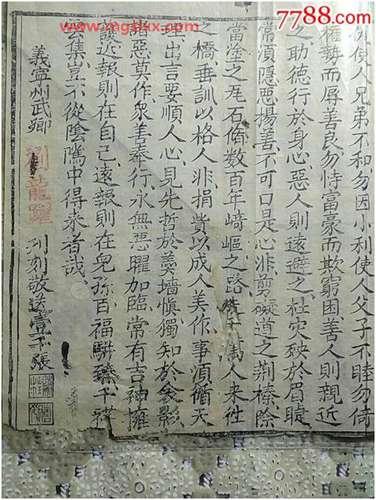 www.mgskxx.com
7788.com
使人兄弟不和勿因小利使人父子不睦勿倚
權勢而辱善良勿恃富豪而欺窮困善人則親近
之助德行於身心惡人則遠避之杜災殃於眉睫
常須隱惡揚善不可口是心非剪礙道之荊榛除
當塗之瓦石修數百年崎嶇之路造千萬人來往
橋垂訓以格人非捐貲以成人美作事須循天
出言要順人心見先哲於羹墻慎獨知於衾影
惡莫作衆善奉行永無惡曜加臨常有吉神擁
近報則在自己遠報則在兒孫百福駢臻千祥
集豈不從陰隲中得來者哉
義寧州武鄉劉龍躍刊刻敬送壹千張